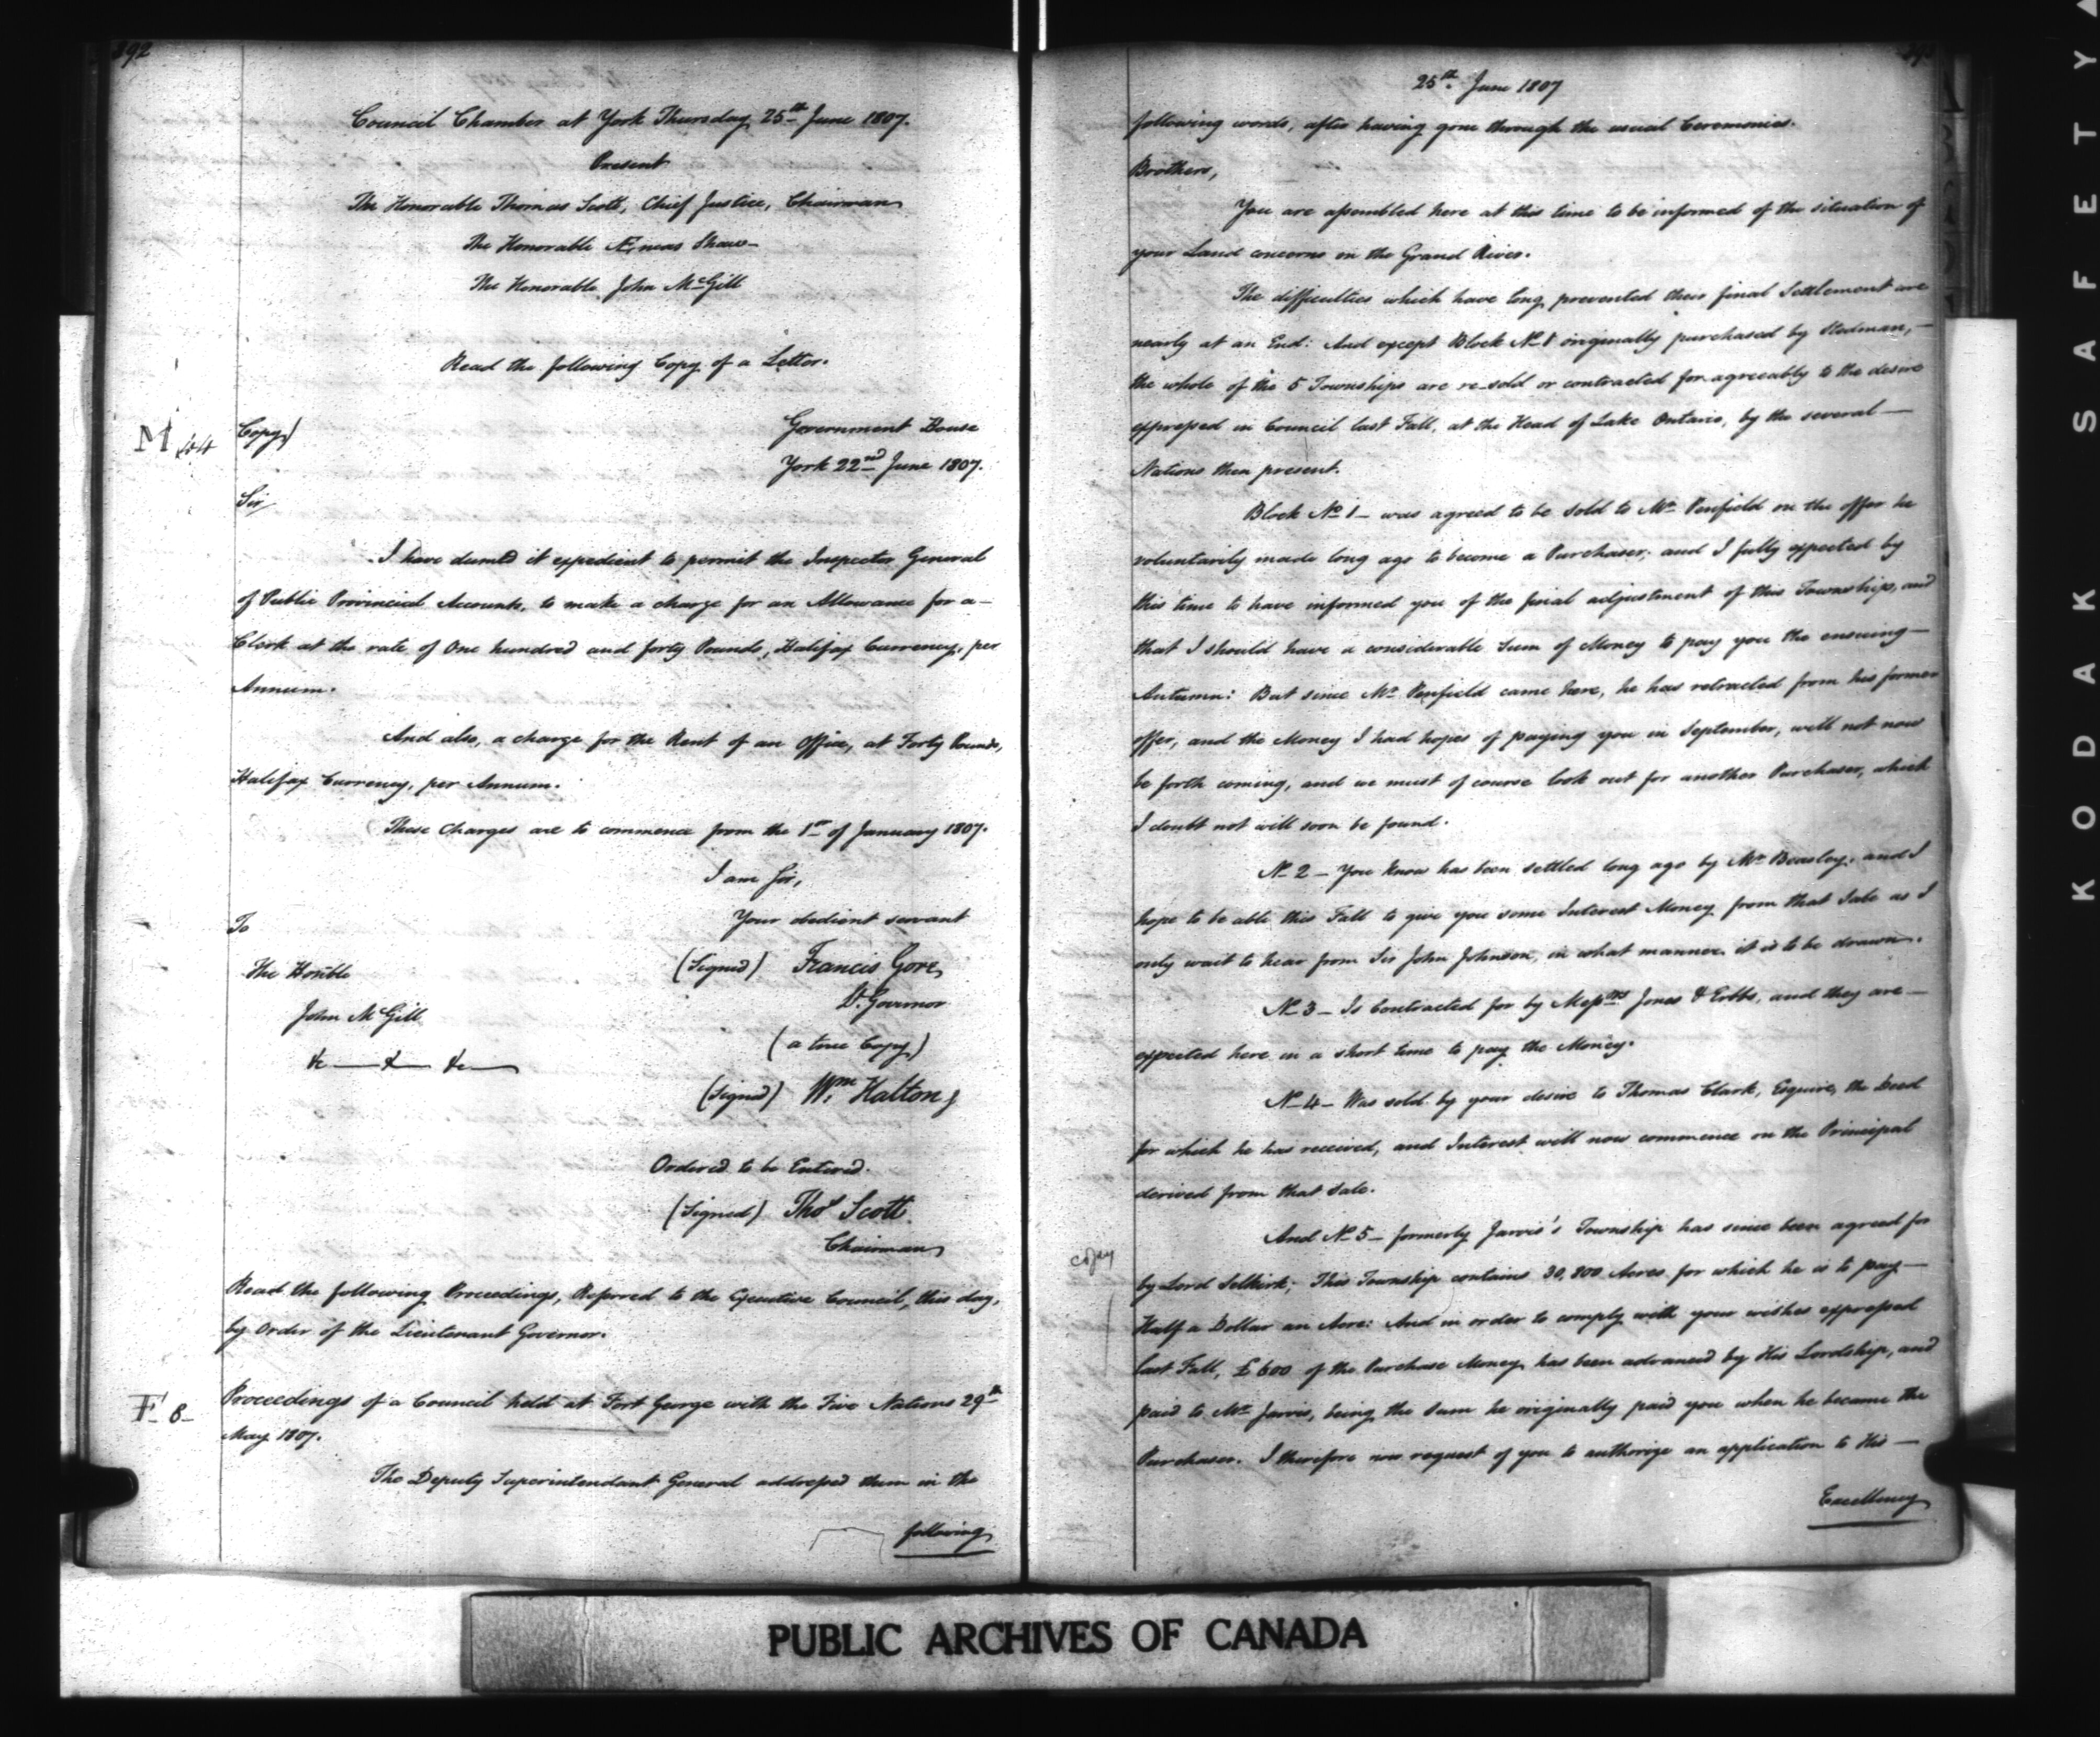 392
Council Chamber at York Thursday 25th June 1807.
Present
The Honorable Thomas Scott, Chief Justice, Chairman
The Honorable Æneas Shaw
The Honorable John McGill
Read the following Copy of a Letter.
M 44
Copy)
Government House
York 22nd June 1807.
Sir
I have deemed it expedient to permit the Inspector General
of Public Provincial Accounts, to make a charge for an Allowance for a
Clerk at the rate of One hundred and forty Pounds, Halifax Currency, per
Annum.
And also, a charge for the Rent of an Office, at Forty Pounds,
Halifax Currency, per Annum.
These Charges are to commence from the 1st of January 1807.
I am Sir,
Your obedient servant
To
The Honble
(Signed) Francis Gore
Lt. Governor
John McGill
(a true Copy)
&c — & — &c —
(Signed) Wm. Halton
Ordered to be Entered.
(Signed) Thos Scott.
Chairman
Read the following Proceedings, Referred to the Executive Council, this day,
by Order of the Lieutenant Governor.
F 8
Proceedings of a Council held at Fort George with the Five Nations 29th
May 1807.
The Deputy Superintendant General addressed them in the
following
25th June 1807
following words, after having gone through the usual Ceremonies.
Brothers,
You are assembled here at this time to be informed of the situation of
your Land concerns on the Grand River.
The difficulties which have long prevented their final Settlement are
nearly at an End: And except Block No 8 originally purchased by Stedman,—
the whole of the 5 Townships are re-sold or contracted for agreeably to the desire
expressed in Council last Fall, at the Head of Lake Ontario, by the several—
Nations then present.
Block No 1— was agreed to be sold to Mr Penfield on the offer he
voluntarily made long ago to become a Purchaser; and I fully expected by
this time to have informed you of the final adjustment of this Township, and
that I should have a considerable Sum of Money to pay you the ensuing—
Autumn: But since Mr Penfield came here, he has retracted from his former
offer, and the Money I had hopes of paying you in September, will not now
be forth coming, and we must of course look out for another Purchaser, which
I doubt not will soon be found.
No 2— You know has been settled long ago by Mr Beasley; and I
hope to be able this Fall to give you some Interest Money from that Sale as I
only wait to hear from Sir John Johnson, in what manner it is to be drawn.
No 3— Is Contracted for by Messrs Jones & Erbbs, and they are—
expected here in a short time to pay the Money.
No 4— Was sold by your desire to Thomas Clark, Esquire, the Deed
for which he has received, and Interest will now commence on the Principal
derived from that Sale.
And No 5— formerly Jarvis's Township has since been agreed for
copy
by Lord Selkirk; This Township contains 30,800 Acres for which he is to pay—
Half a Dollar an Acre: And in order to comply with your wishes expressed
last Fall, £600 of the Purchase Money has been advanced by His Lordship, and
paid to Mr Jarvis, being the Sum he originally paid you when he became the
Purchaser. I therefore now request of you to authorize an application to His—
Excellency
PUBLIC ARCHIVES OF CANADA
KODAK SAFETY